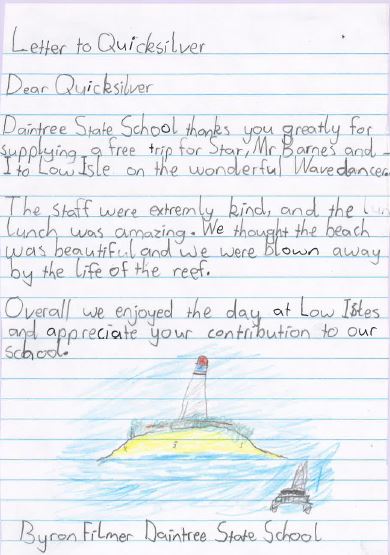 Letter to Quicksilver
Dear Quicksilver
Daintree State School thanks you greatly for
supplying a free trip for Star, Mr Barnes and
I to Low Isle on the wonderful Wavedancer.
The staff were extremly kind, and the
lunch was amazing. We thought the beach
was beautiful and we were blown away
by the life of the reef.
Overall we enjoyed the day at Low Isles
and appreciate your contribution to our
school.
Byron Filmer Daintree State School